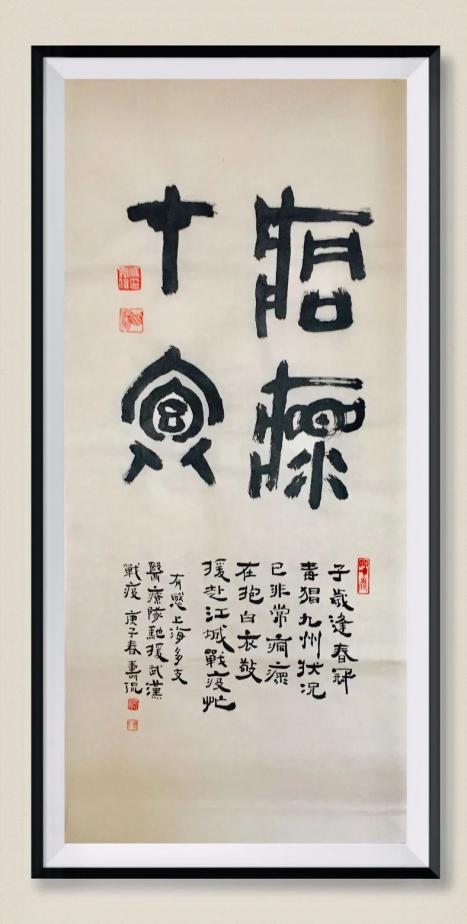 痌瘝
子歲逢春冠
毒猖九州狀況
已非常痌瘝
在抱白衣敬
援赴江城戰疫忙
有感上海多支
醫療隊馳援武漢
戰疫 庚子春